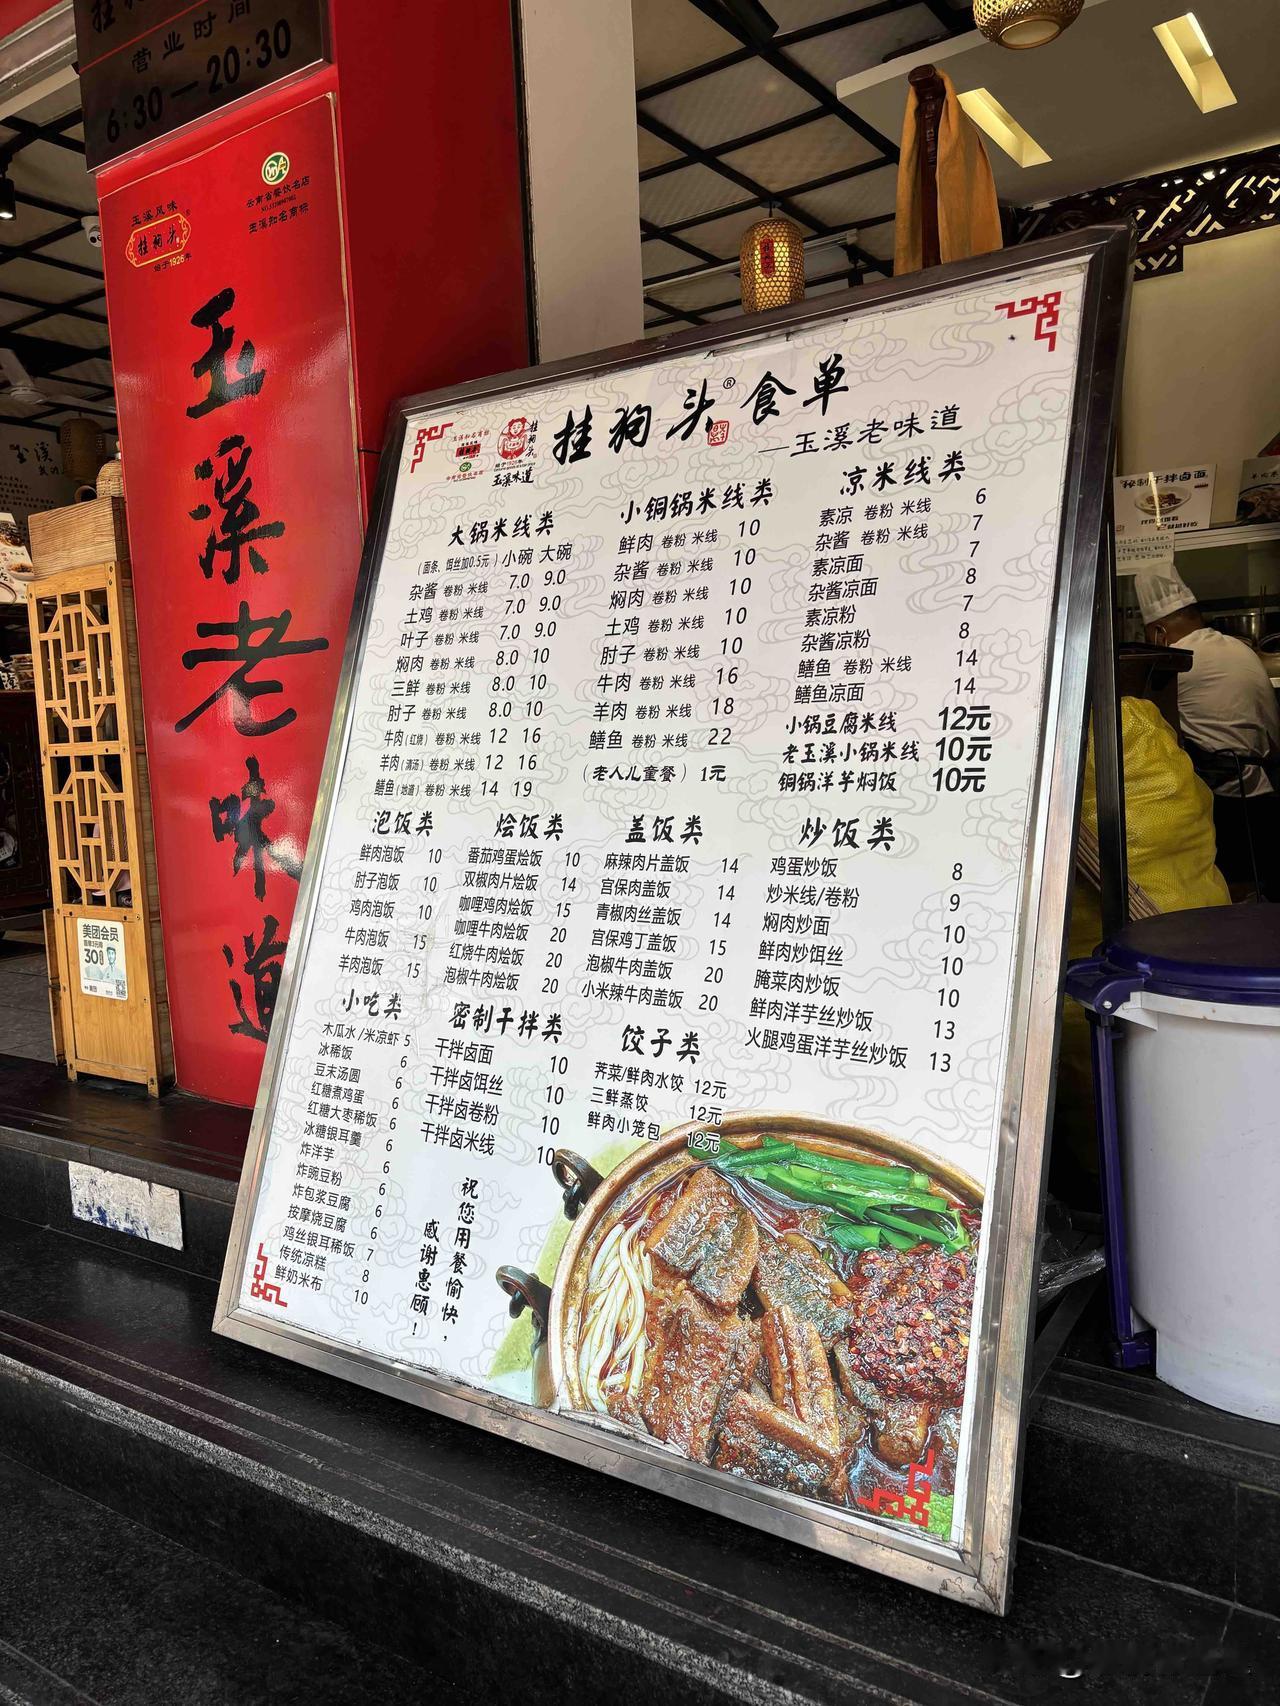 营业时间
6:30—20:30
玉溪风味
挂狗头
始于1926年
云南省餐饮名店
玉溪知名商标
玉溪老味道
美团会员
30
秘制干拌卤面
挂狗头®食单
—玉溪老味道
挂狗头
玉溪味道
大锅米线类
(面条、饵丝加0.5元) 小碗 大碗
杂酱 卷粉 米线 7.0 9.0
土鸡 卷粉 米线 7.0 9.0
叶子 卷粉 米线 7.0 9.0
焖肉 卷粉 米线 8.0 10
三鲜 卷粉 米线 8.0 10
肘子 卷粉 米线 8.0 10
牛肉(红烧) 卷粉 米线 12 16
羊肉(清汤) 卷粉 米线 12 16
鳝鱼(地道) 卷粉 米线 14 19
小铜锅米线类
鲜肉 卷粉 米线 10
杂酱 卷粉 米线 10
焖肉 卷粉 米线 10
土鸡 卷粉 米线 10
肘子 卷粉 米线 10
牛肉 卷粉 米线 16
羊肉 卷粉 米线 18
鳝鱼 卷粉 米线 22
(老人儿童餐) 1元
凉米线类
素凉 卷粉 米线 6
杂酱 卷粉 米线 7
素凉面 7
杂酱凉面 8
素凉粉 7
杂酱凉粉 8
鳝鱼 卷粉 米线 14
鳝鱼凉面 14
小锅豆腐米线 12元
老玉溪小锅米线 10元
铜锅洋芋焖饭 10元
泡饭类
鲜肉泡饭 10
肘子泡饭 10
鸡肉泡饭 10
牛肉泡饭 15
羊肉泡饭 15
烩饭类
番茄鸡蛋烩饭 10
双椒肉片烩饭 14
咖哩鸡肉烩饭 15
咖哩牛肉烩饭 20
红烧牛肉烩饭 20
泡椒牛肉烩饭 20
盖饭类
麻辣肉片盖饭 14
宫保肉盖饭 14
青椒肉丝盖饭 14
宫保鸡丁盖饭 15
泡椒牛肉盖饭 20
小米辣牛肉盖饭 20
炒饭类
鸡蛋炒饭 8
炒米线/卷粉 9
焖肉炒面 10
鲜肉炒饵丝 10
腌菜肉炒饭 10
鲜肉洋芋丝炒饭 13
火腿鸡蛋洋芋丝炒饭 13
小吃类
木瓜水/米凉虾 5
冰稀饭 6
豆末汤圆 6
红糖煮鸡蛋 6
红糖大枣稀饭 6
冰糖银耳羹 6
炸洋芋 6
炸豌豆粉 6
炸包浆豆腐 6
按摩烧豆腐 6
鸡丝银耳稀饭 7
传统凉糕 8
鲜奶米布 10
密制干拌类
干拌卤面 10
干拌卤饵丝 10
干拌卤卷粉 10
干拌卤米线 10
饺子类
荠菜/鲜肉水饺 12元
三鲜蒸饺 12元
鲜肉小笼包 12元
祝您用餐愉快，
感谢惠顾！